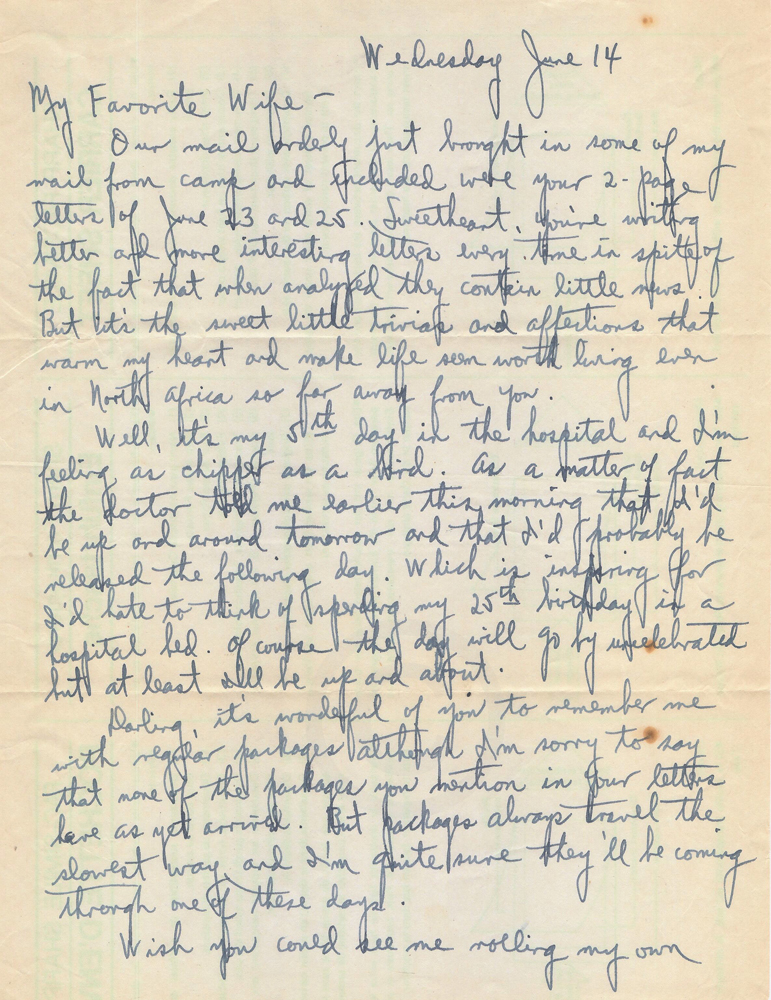 Wednesday June 14
My Favorite Wife —
Our mail orderly just brought in some of my
mail from camp and included were your 2-page
letters of June 23 and 25. Sweetheart, you're writing
better and more interesting letters every time in spite of
the fact that when analyzed they contain little news.
But it's the sweet little trivias and affections that
warm my heart and make life seem worth living even
in North Africa so far away from you.
Well, it's my 5th day in the hospital and I'm
feeling as chipper as a bird. As a matter of fact
the doctor told me earlier this morning that I'd
be up and around tomorrow and that I'd probably be
released the following day. Which is inspiring for
I'd hate to think of spending my 25th birthday in a
hospital bed. Of course the day will go by uncelebrated
but at least I'll be up and about.
Darling, it's wonderful of you to remember me
with regular packages although I'm sorry to say
that none of the packages you mention in your letters
have as yet arrived. But packages always travel the
slowest way and I'm quite sure they'll be coming
through one of these days.
Wish you could see me rolling my own